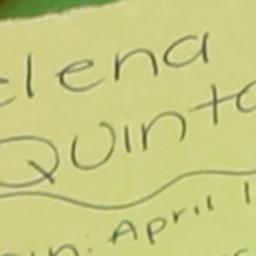 elena
Quinta
April 1